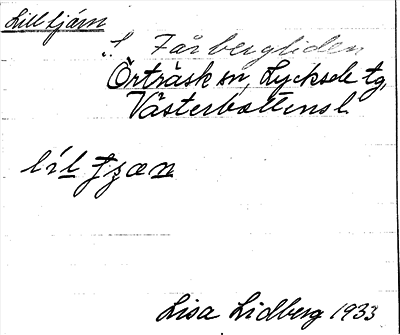 Lilltjärn
"I Fårbergliden
Örträsk sn, Lycksele tg,
Västerbottens l.
lil tjæn
Lisa Lidberg 1933